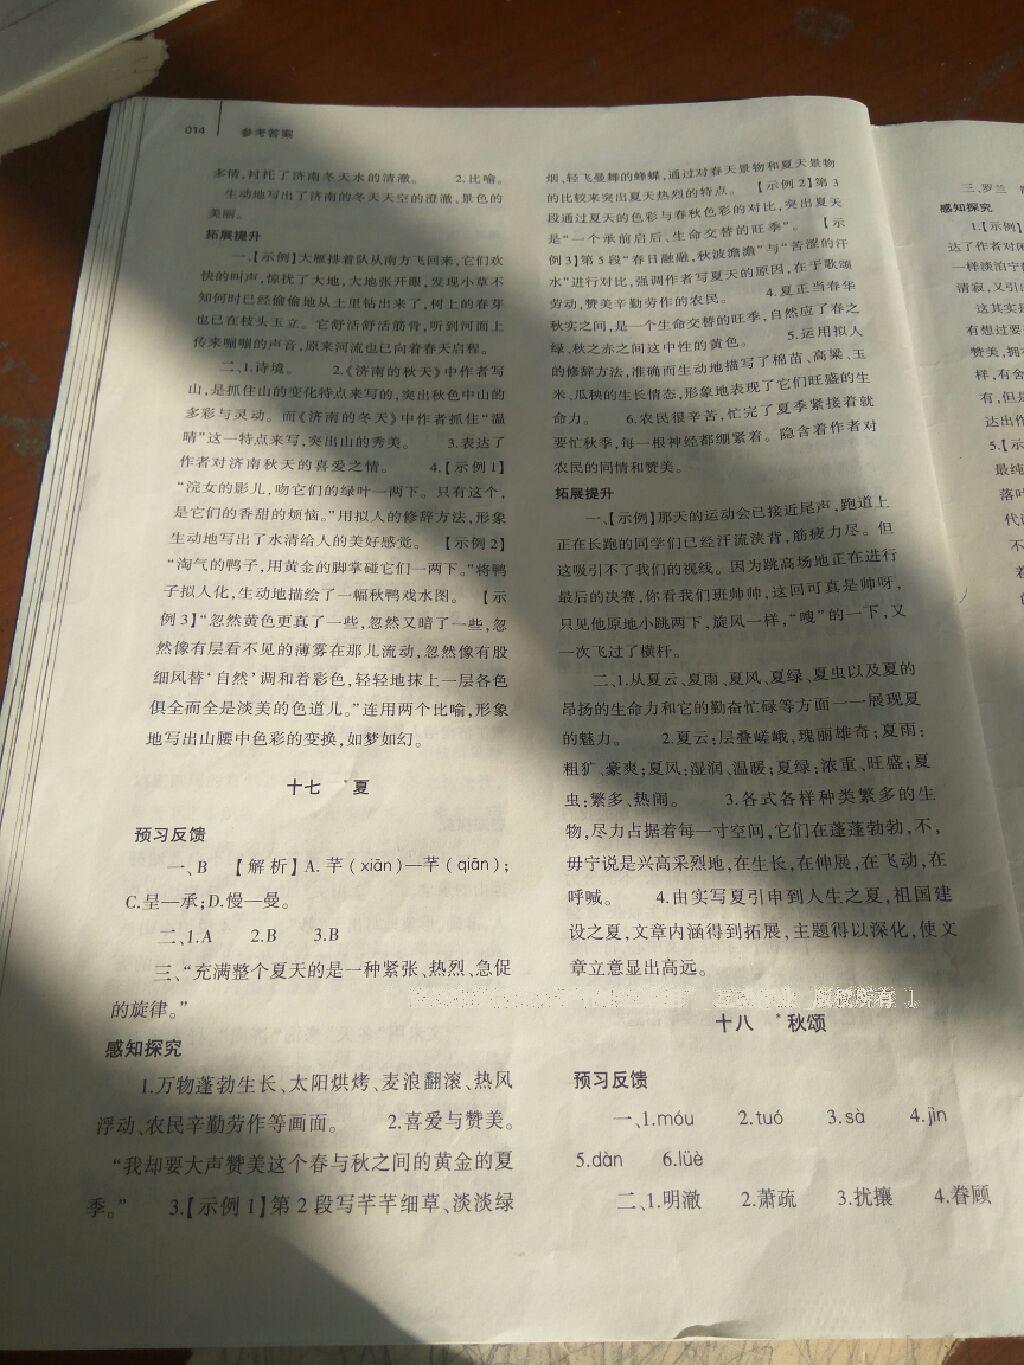 014 参考答案
多情,衬托了济南冬天水的清澈。 2.比喻。
生动地写出了济南的冬天天空的澄澈,景色的
美丽。
拓展提升
一、【示例】大雁排着队从南方飞回来,它们欢
快的叫声,惊扰了大地,大地张开眼,发现小草不
知何时已经偷偷地从土里钻出来了,树上的春芽
也已在枝头玉立。它舒活舒活筋骨,听到河面上
传来嘣嘣的声音,原来河流也已向着春天启程。
二、1.诗境。 2.《济南的秋天》中作者写
山,是抓住山的变化特点来写的,突出秋色中山的
多彩与灵动。而《济南的冬天》中作者抓住“温
晴”这一特点来写,突出山的秀美。 3.表达了
作者对济南秋天的喜爱之情。 4.【示例1】
“浣女的影儿,吻它们的绿叶一两下。只有这个,
是它们的香甜的烦恼。”用拟人的修辞方法,形象
生动地写出了水清给人的美好感觉。 【示例2】
“淘气的鸭子,用黄金的脚掌碰它们一两下。”将鸭
子拟人化,生动地描绘了一幅秋鸭戏水图。 【示
例3】“忽然黄色更真了一些,忽然又暗了一些,忽
然像有层看不见的薄雾在那儿流动,忽然像有股
细风替‘自然’调和着彩色,轻轻地抹上一层各色
俱全而全是淡美的色道儿。”连用两个比喻,形象
地写出山腰中色彩的变换,如梦如幻。
十七 *夏
预习反馈
一、B 【解析】A.芊(xiān)—芊(qiān);
C.呈—承;D.慢—曼。
二、1.A 2.B 3.B
三、“充满整个夏天的是一种紧张、热烈、急促
的旋律。”
感知探究
1.万物蓬勃生长、太阳烘烤、麦浪翻滚、热风
浮动、农民辛勤劳作等画面。 2.喜爱与赞美。
“我却要大声赞美这个春与秋之间的黄金的夏
季。” 3.【示例1】第2段写芊芊细草、淡淡绿
烟、轻飞曼舞的蜂蝶,通过对春天景物和夏天景物
的比较来突出夏天热烈的特点。 【示例2】第3
段通过夏天的色彩与春秋色彩的对比,突出夏天
是“一个承前启后、生命交替的旺季”。 【示
例3】第5段“春日融融,秋波澹澹”与“苦涩的汗
水”进行对比,强调作者写夏天的原因,在于歌颂
劳动,赞美辛勤劳作的农民。 4.夏正当春华
秋实之间,是一个生命交替的旺季,自然应了春之
绿、秋之赤之间这中性的黄色。 5.运用拟人
的修辞方法,准确而生动地描写了棉苗、高粱、玉
米、瓜秧的生长情态,形象地表现了它们旺盛的生
命力。 6.农民很辛苦,忙完了夏季紧接着就
要忙秋季,每一根神经都绷紧着。隐含着作者对
农民的同情和赞美。
拓展提升
一、【示例】那天的运动会已接近尾声,跑道上
正在长跑的同学们已经汗流浃背,筋疲力尽。但
这吸引不了我们的视线。因为跳高场地正在进行
最后的决赛,你看我们班帅帅,这回可真是帅呀,
只见他原地小跳两下,旋风一样,“嗖”的一下,又
一次飞过了横杆。
二、1.从夏云、夏雨、夏风、夏绿、夏虫以及夏的
昂扬的生命力和它的勤奋忙碌等方面一一展现夏
的魅力。 2.夏云:层叠嵯峨,瑰丽雄奇;夏雨:
粗犷、豪爽;夏风:湿润、温暖;夏绿:浓重、旺盛;夏
虫:繁多、热闹。 3.各式各样种类繁多的生
物,尽力占据着每一寸空间,它们在蓬蓬勃勃,不,
毋宁说是兴高采烈地,在生长,在伸展,在飞动,在
呼喊。 4.由实写夏引申到人生之夏,祖国建
设之夏,文章内涵得到拓展,主题得以深化,使文
章立意显出高远。
版权所有
十八 *秋颂
预习反馈
一、1.móu 2.tuó 3.sà 4.jìn
5.dàn 6.lüè
二、1.明澈 2.萧疏 3.扰攘 4.眷顾
三.罗兰
感知探究
1.【示例】
达了作者对
一样淡泊宁
清寂,又引
这其实是
有想过要
赞美,拥
样,有舍
有,但是
达出作
5.【示
最纯
落叶
代
不